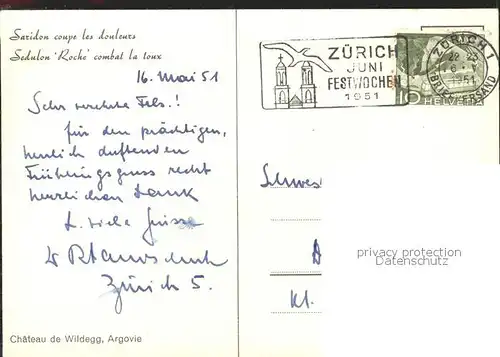 Saridon coupe les douleurs
Sedulon 'Roche' combat la toux
16. Mai 51
Sehr verehrte Frls.!
für den prächtigen,
herrlich duftenden
Frühlingsgruss recht
herzlichen Dank
u. viele Grüsse
Zürich 5.
Château de Wildegg, Argovie
ZÜRICH
JUNI
FESTWOCHEN
1951
ZÜRICH 1
BRIEFVERSAND
10 HELVETIA
Schwes
privacy protection
Datenschutz
Kl.